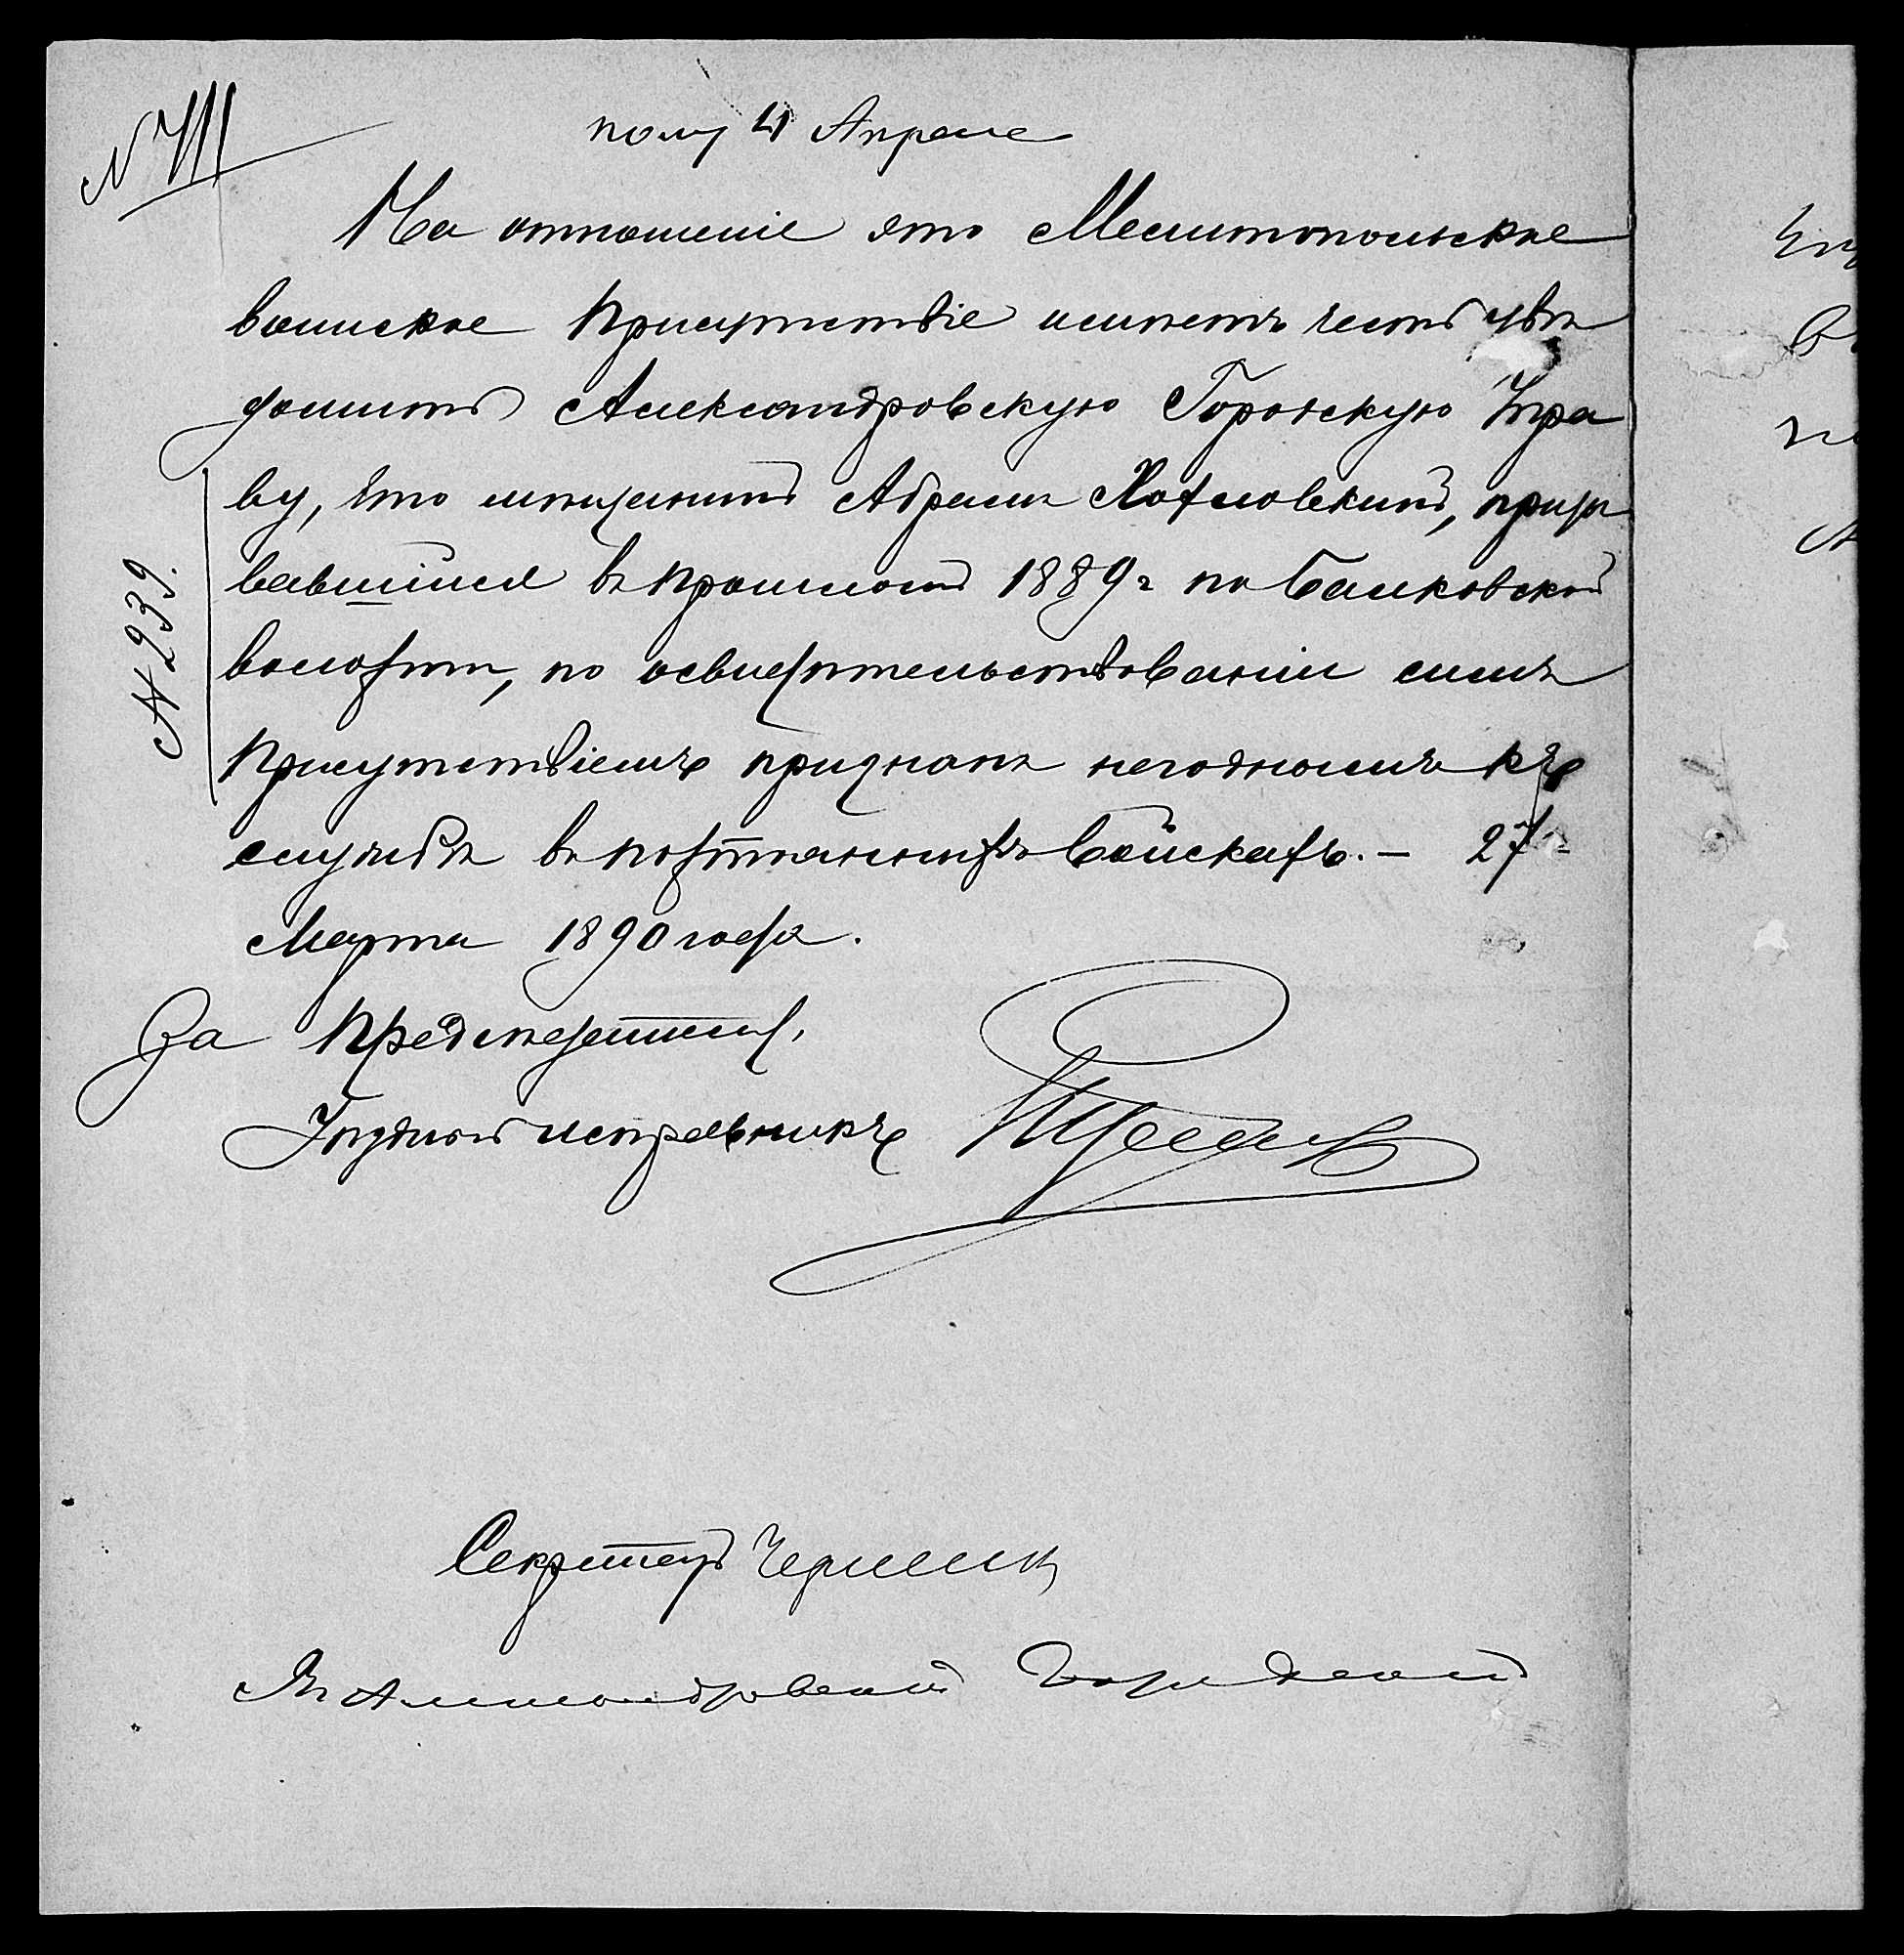 № 711
полу 4 Апреля
На отношеніе это Мелитопольское
воинское Присутствіе имѣетъ честь увѣ
домить Александровскую Городскую Упра
ву, что мѣщанинъ Абрамъ Хатловскій, призы
вавшійся въ прошломъ 1889 г по Балковской
волости, по освидѣтельствованіи симъ
Присутствіемъ признанъ негоднымъ къ
службѣ въ постоянныхъ войскахъ. — 27
Марта 1890 года.
№ 239.
За Предсѣдателя,
Уѣздный исправникъ
Секретарь
Въ Александровскій Городской